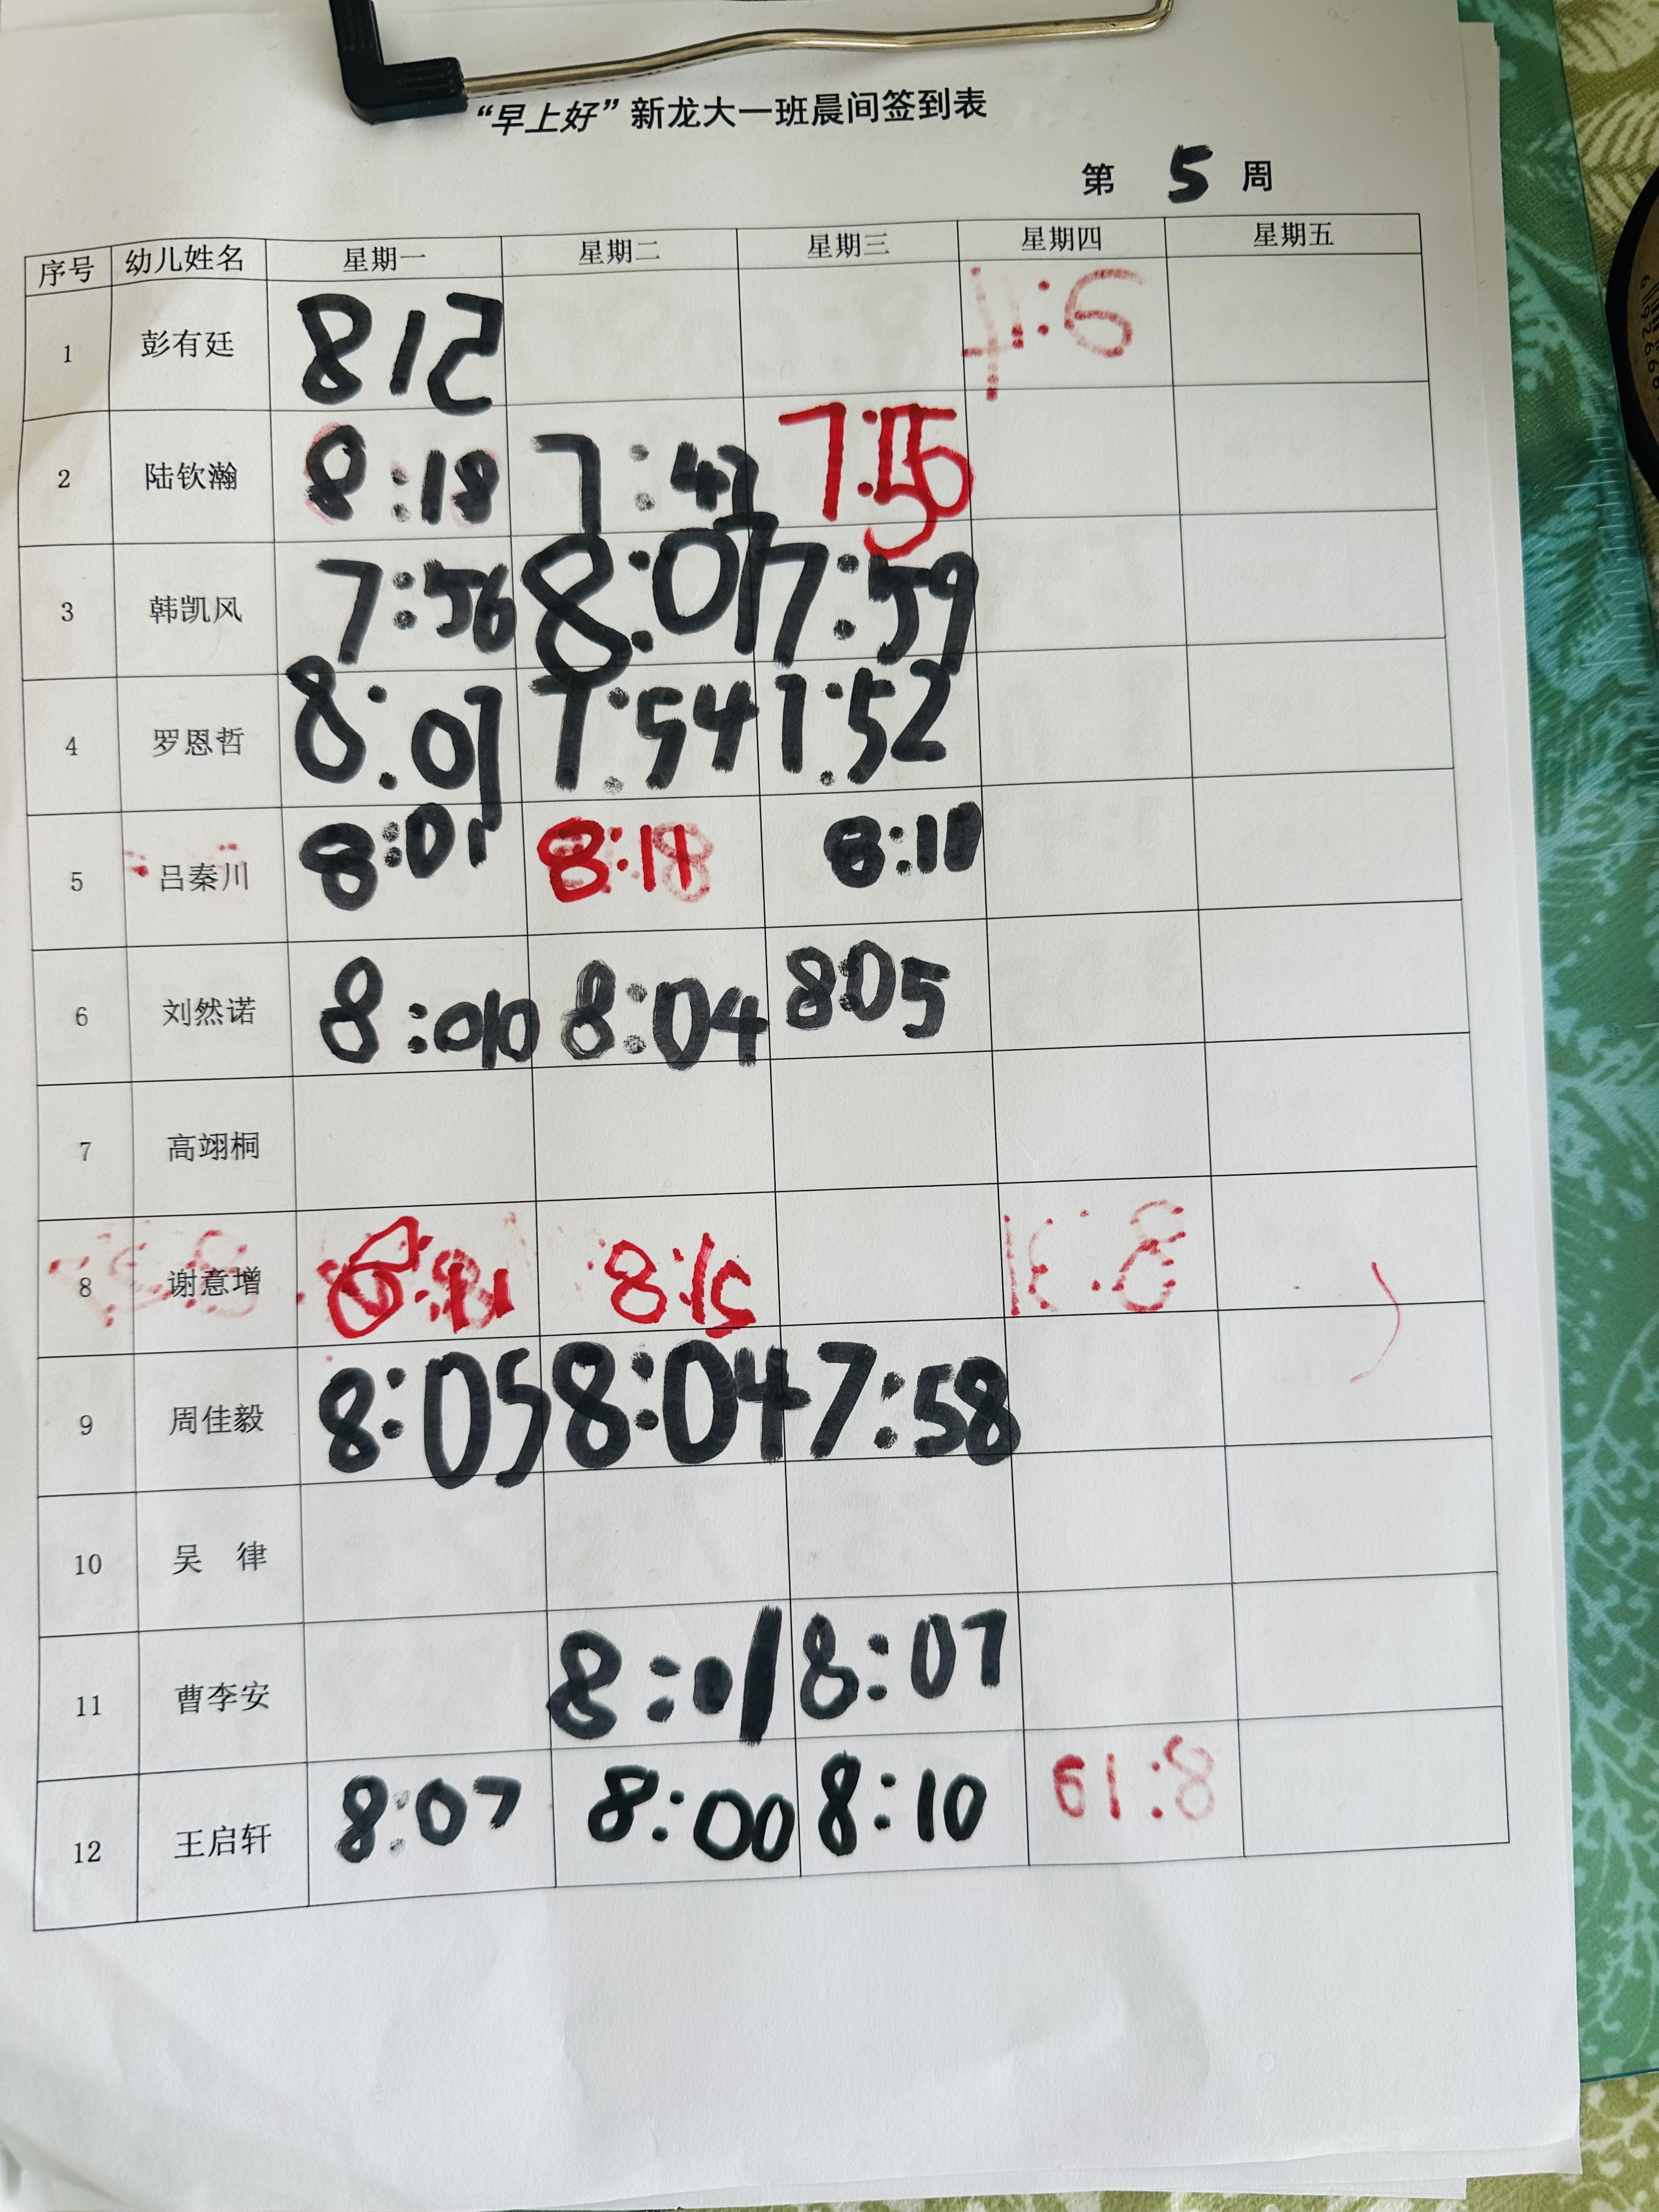 “早上好”新龙大一班晨间签到表
第 5 周
序号 幼儿姓名 星期一 星期二 星期三 星期四 星期五
1 彭有廷 812
2 陆钦瀚 8:18 7:47
3 韩凯风 7:56 8:07 7:59
4 罗恩哲 8:07 7:54 7:52
5 吕秦川 8:01 8:11 8:10
6 刘然诺 8:010 8:04 805
7 高翊桐
8 谢意增 8:15
9 周佳毅 8:05 8:04 7:58
10 吴 律
11 曹李安 8:01 8:07
12 王启轩 8:07 8:00 8:10